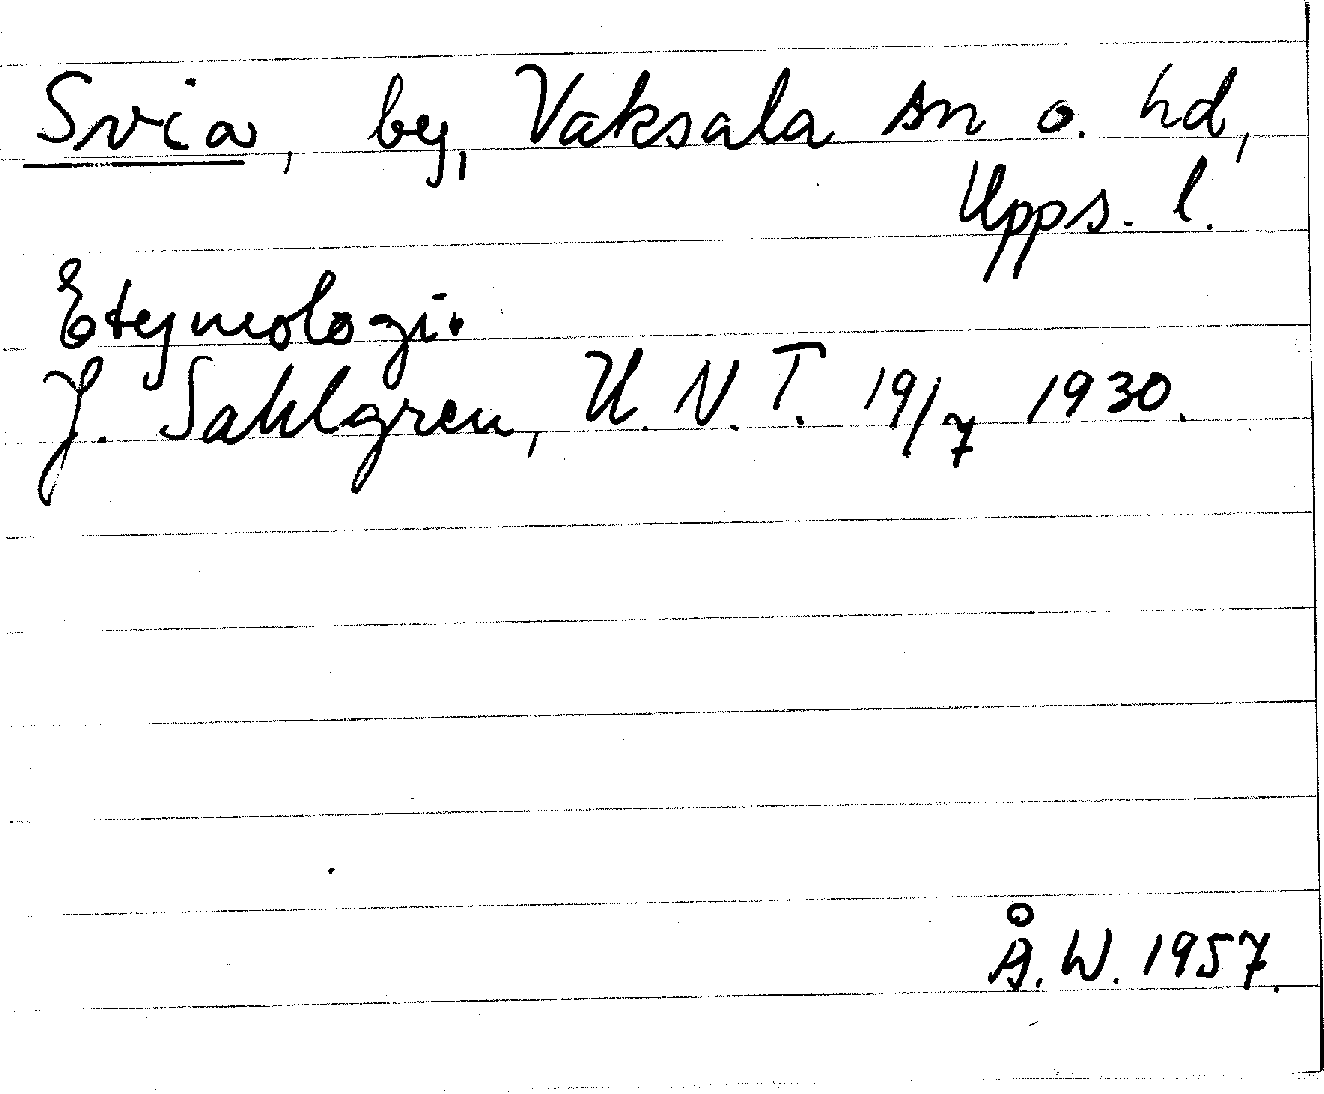 Svia, by, Vaksala sn o. hd,
Upps. l.
Etymologi.
J. Sahlgren, U. N. T. 19/7 1930.
Å. W. 1957.